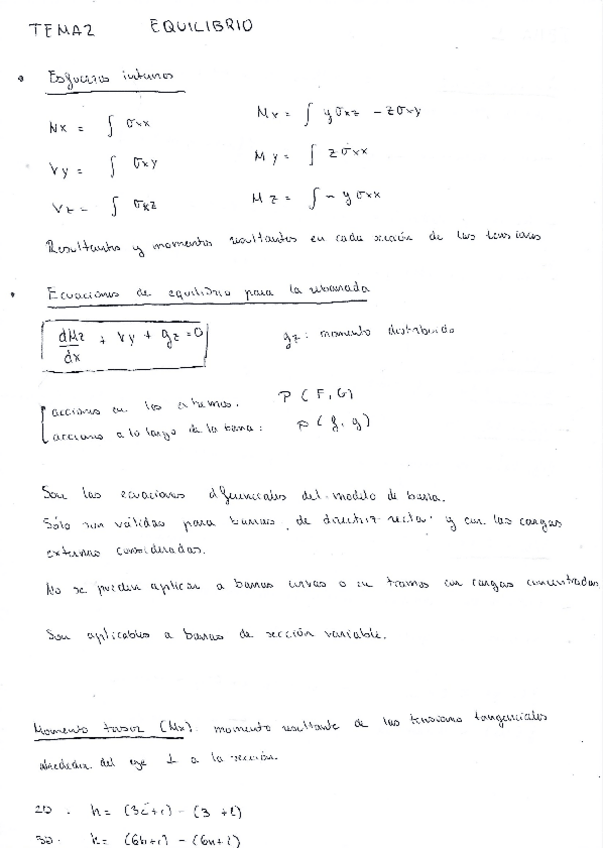 TEMA2 EQUILIBRIO
Esfuerzos internos
Nx = ∫ σxx
Mx = ∫ yσxz - zσxy
Vy = ∫ σxy
My = ∫ zσxx
Vz = ∫ σxz
Mz = ∫ - yσxx
Resultantes y momentos resultantes en cada sección de las tensiones
Ecuaciones de equilibrio para la rebanada
dMz/dx + Vy + gz = 0
gz: momento distribuido
acciones en los extremos: P (F, G)
acciones a lo largo de la barra: p (f, g)
Son las ecuaciones diferenciales del modelo de barra.
Sólo son válidas para barras de directriz recta y con las cargas
externas consideradas.
No se pueden aplicar a barras curvas o en tramos con cargas concentradas
Son aplicables a barras de sección variable.
Momento torsor (Mx): momento resultante de las tensiones tangenciales
alrededor del eje ⊥ a la sección.
2D. h = (3c+r) - (3+l)
3D. h = (6b+r) - (6n+l)